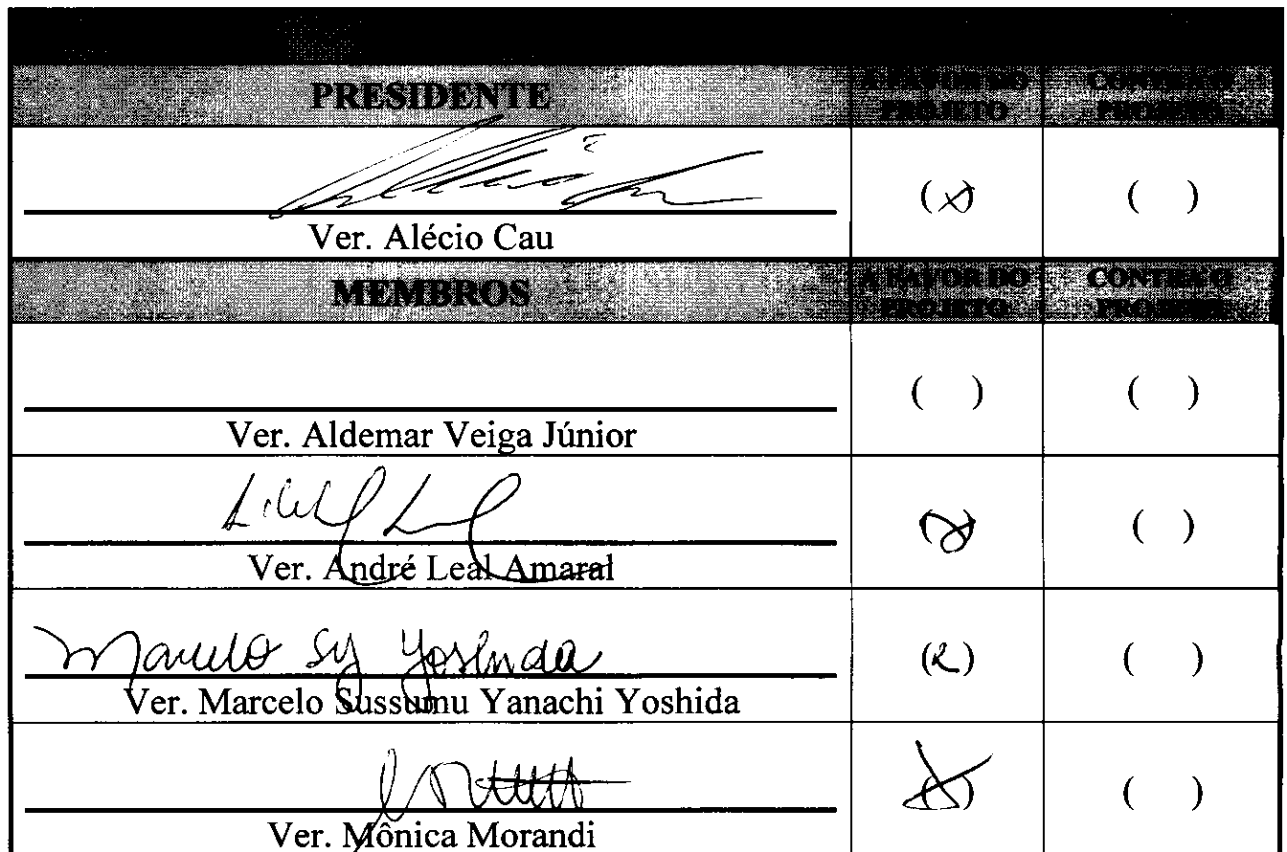 PRESIDENTE
A FAVOR DO PROJETO
CONTRA O PROJETO
(x) ( )
Ver. Alécio Cau
MEMBROS
A FAVOR DO PROJETO
CONTRA O PROJETO
( ) ( )
Ver. Aldemar Veiga Júnior
(x) ( )
Ver. André Leal Amaral
Marcelo Sy Yoshida
(x) ( )
Ver. Marcelo Sussumu Yanachi Yoshida
(x) ( )
Ver. Mônica Morandi